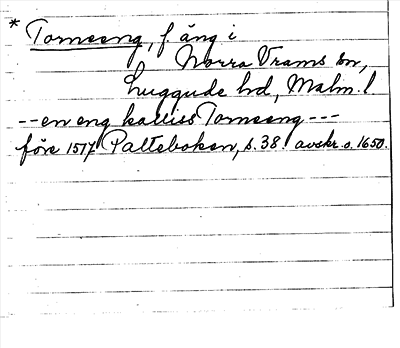 * Tornseng, f. äng i
Norra Vrams sn,
Luggude hd, Malm. l
-- en eng kalliss Tornseng ---
före 1517 Palteboken, s. 38. avskr. o. 1650.